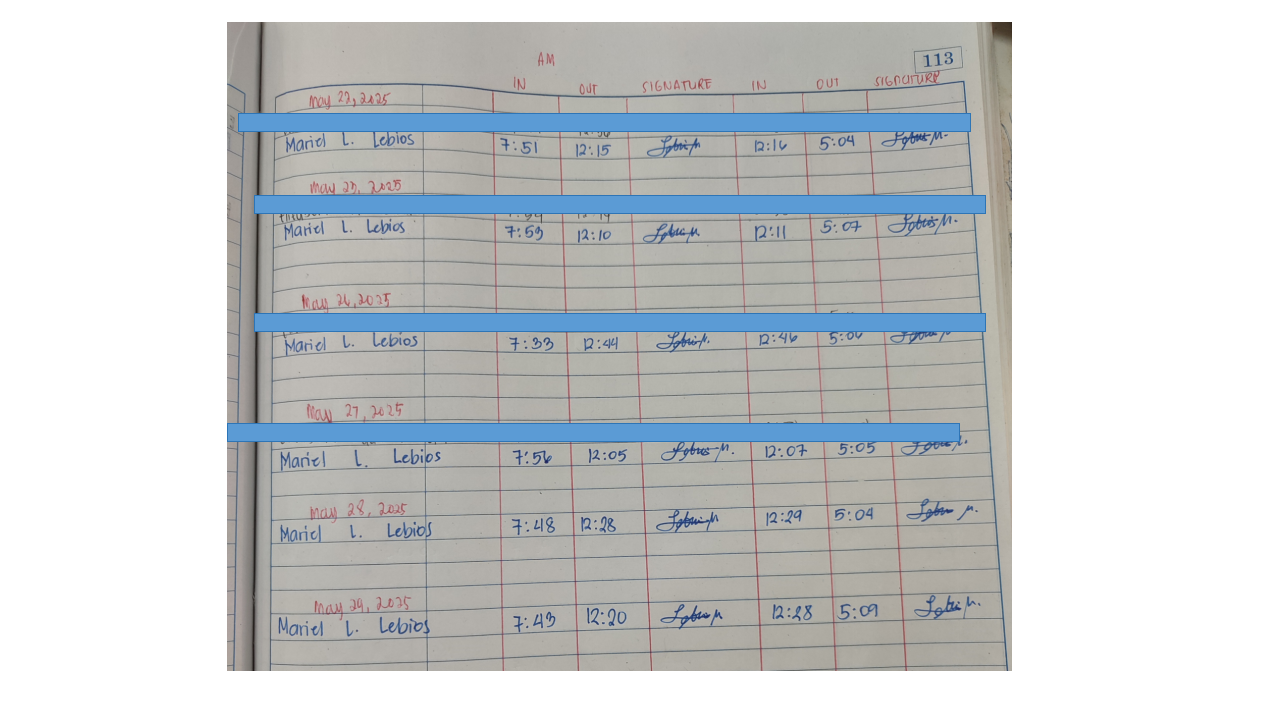 113
AM
IN OUT SIGNATURE IN OUT SIGNATURE
May 22, 2025
Mariel L. Lebios 7:51 12:15 12:16 5:04
May 23, 2025
Mariel L. Lebios 7:59 12:10 12:11 5:07
May 26, 2025
Mariel L. Lebios 7:33 12:44 12:46 5:06
May 27, 2025
Mariel L. Lebios 7:56 12:05 12:07 5:05
May 28, 2025
Mariel L. Lebios 7:48 12:28 12:29 5:04
May 29, 2025
Mariel L. Lebios 7:43 12:20 12:28 5:09